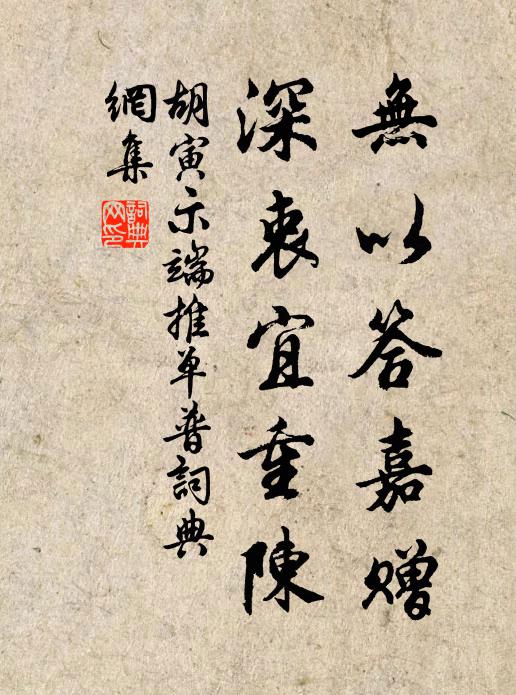 無以答嘉贈
深衷宜重陳
胡寅示端推单普詞典
網集
詞典
网印